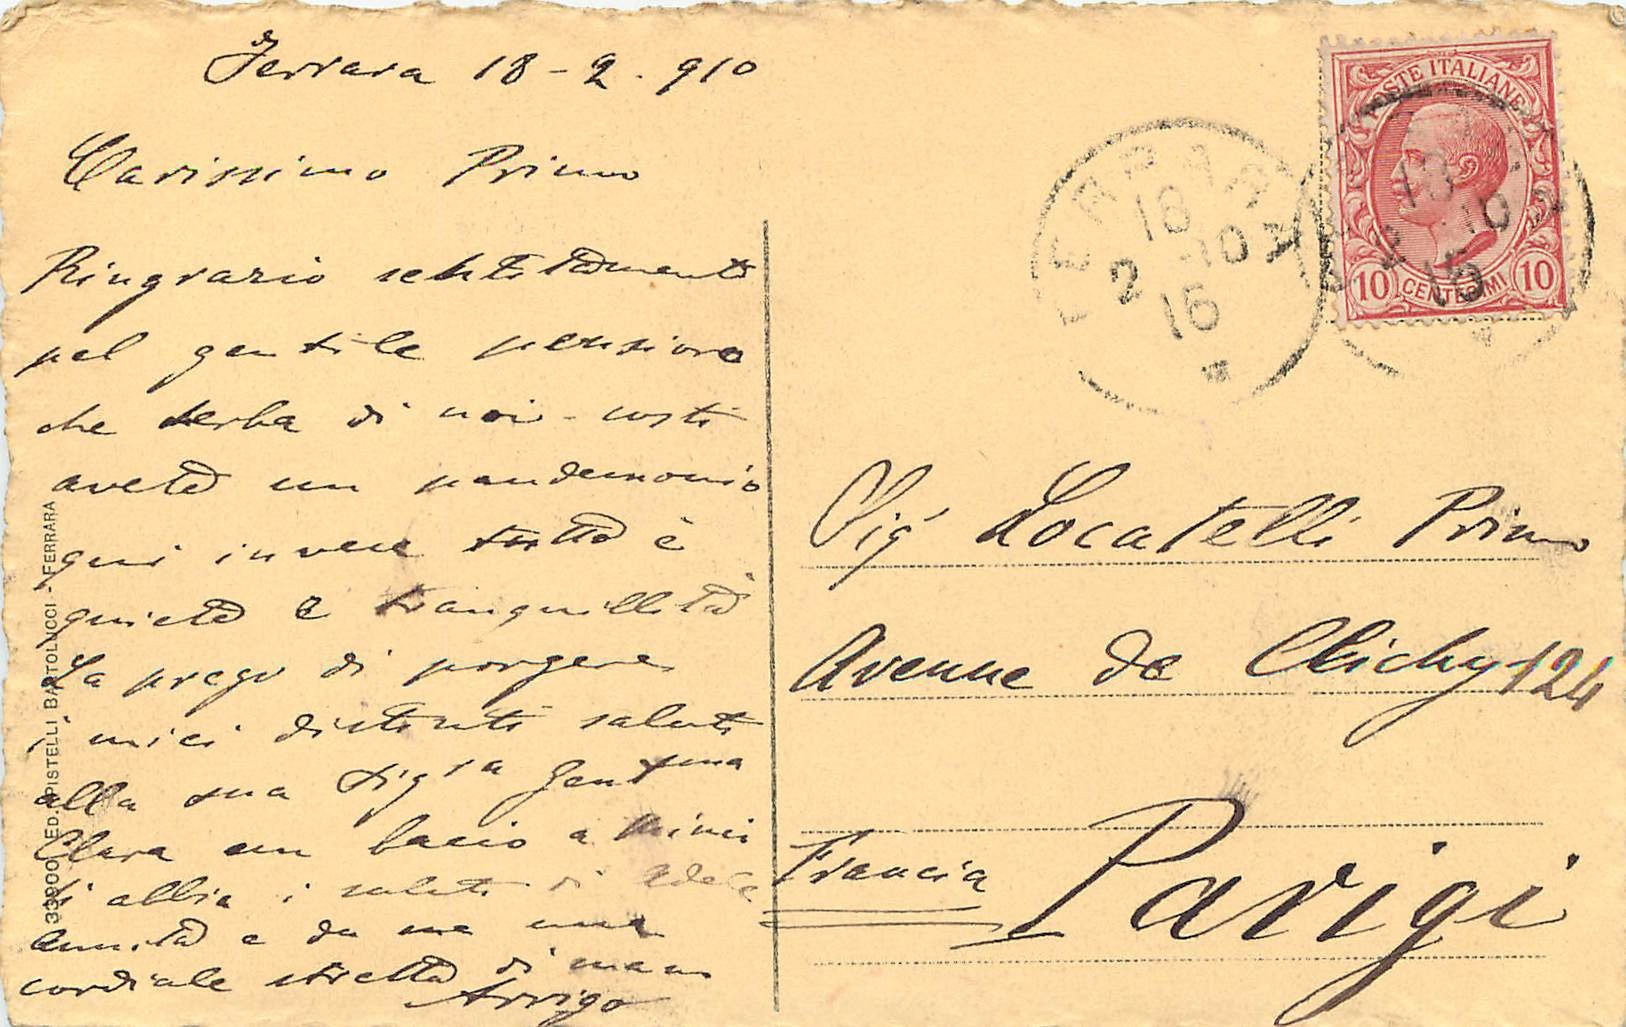 Ferrara 18-2.910
Carissimo Primo
Ringrazio sentitamente
pel gentile pensiero
che serba di noi - costì
avete un pandemonio
qui invece tutto è
quiete e tranquillità
La prego di porgere
i miei distinti saluti
alla sua sigra gentma
Clara un bacio a Mimi
si abbia i saluti di Adele
Annita e da me una
cordiale stretta di mano
Arrigo
33900 ED. PISTELLI BARTOLUCCI - FERRARA
POSTE ITALIANE
10 CENTESIMI 10
FERRARA
18
2 - 10
16
18
2 10
16
Sigr Locatelli Primo
Avenue de Clichy 124
Francia Parigi